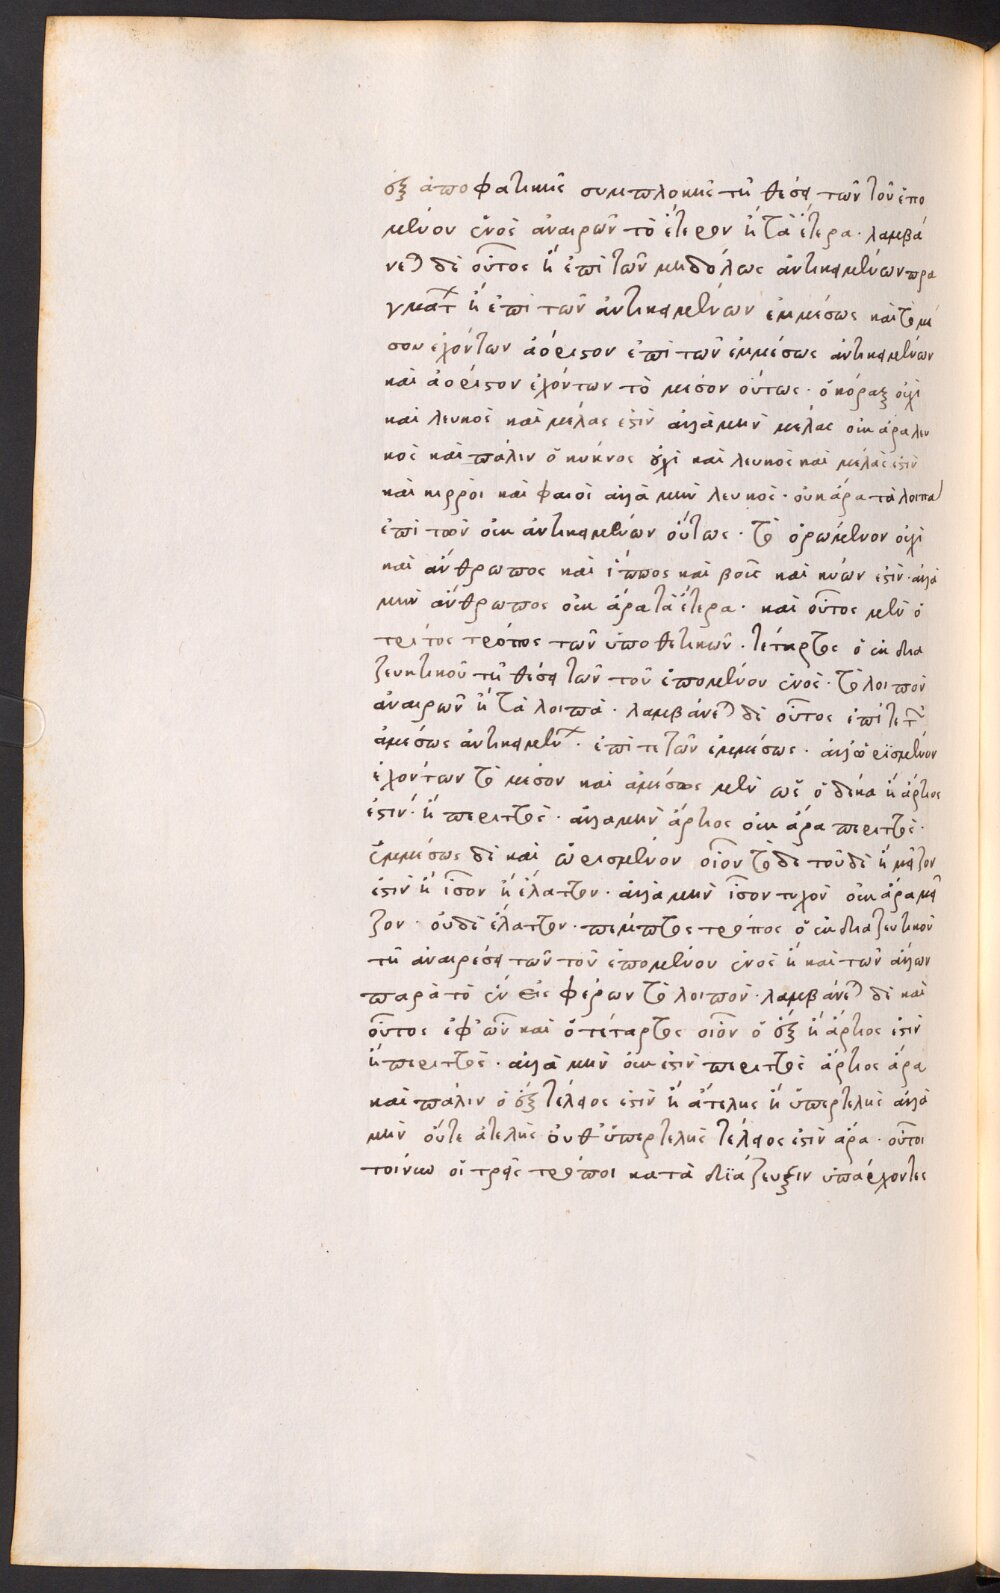 ὁ ἐξ ἀποφατικῆς συμπλοκῆς τῆ θέσει τῶν τοῦ ἑπο
μένου ἑνὸς ἀναιρῶν τὸ ἕτερον ἢ τὰ ἕτερα· λαμβά
νεται δὲ οὗτος ἢ ἐπὶ τῶν μηδόλως ἀντικειμένων πρα
γμάτων ἢ ἐπὶ τῶν ἀντικειμένων ἐμμέσως καὶ τὸ μέ
σον ἐχόντων ἀόριστον ἐπὶ τῶν ἐμμέσως ἀντικειμένων
καὶ ἀόριστον ἐχόντων τὸ μέσον οὕτως· ὁ κόραξ οὐχὶ
καὶ λευκὸς καὶ μέλας ἐστὶν ἀλλὰ μὴν μέλας οὐκ ἄρα λευ
κὸς καὶ πάλιν ὁ κύκνος οὐχὶ καὶ λευκὸς καὶ μέλας ἐστὶν
καὶ κιρρὸι καὶ φαιοὶ ἀλλὰ μὴν λευκὸς· οὐκ ἄρα τὰ λοιπὰ
ἐπὶ τῶν οὐκ ἀντικειμένων οὕτως· τὸ ὁρώμενον οὐχὶ
καὶ ἄνθρωπος καὶ ἵππος καὶ βοῦς καὶ κύων ἐστὶν· ἀλλὰ
μὴν ἄνθρωπος οὐκ ἄρα τὰ ἕτερα· καὶ οὗτος μὲν ὁ
τρίτος τρόπος τῶν ὑποθετικῶν· τέταρτος ὁ ἐκ δια
ζευκτικοῦ τῆ θέσει τῶν τοῦ ἑπομένου ἑνὸς· τὸ λοιπὸν
ἀναιρῶν ἢ τὰ λοιπά· λαμβάνεται δὲ οὗτος ἐπί τε τῶν
ἀμέσως ἀντικειμένων· ἐπί τε τῶν ἐμμέσως· ἀλλ' ὡρϊσμένον
ἐχόντων τὸ μέσον καὶ ἀμέσως μὲν ὡς ὁ δέκα ἢ ἄρτιος
ἐστὶν· ἢ περιττὸς· ἀλλὰ μὴν ἄρτιος οὐκ ἄρα περιττὸς·
ἐμμέσως δὲ καὶ ὡρισμένον οἷον τὸ δὲ τοῦδε ἢ μεῖζον
ἐστὶν ἢ ἴσον ἢ ἔλαττον· ἀλλὰ μὴν ἴσον τυχὸν οὐκ ἄρα μεῖ
ζον· οὐδὲ ἔλαττον· πέμπτος τρόπος ὁ ἐκ διαζευτικοῦ
τῆ ἀναιρέσει τῶν τοῦ ἑπομένου ἑνὸς ἢ καὶ τῶν ἄλλων
παρὰ τὸ ἓν εἰς φέρων τὸ λοιπὸν· λαμβάνεται δὲ καὶ
οὗτος ἐφ' ὧν καὶ ὁ τέταρτος οἷον ὁ ἓξ ἢ ἄρτιος ἐστὶν
ἢ περιττὸς· ἀλλὰ μὴν οὐκ ἐστὶν περιττὸς ἄρτιος ἄρα
καὶ πάλιν ὁ ἓξ τέλειος ἐστὶν ἢ ἀτελὴς ἢ ὑπερτελὴς ἀλλὰ
μὴν οὔτε ἀτελὴς οὔθ' ὑπερτελὴς τέλειος ἐστὶν ἄρα· οὗτοι
τοίνυν οἱ τρεῖς τρόποι κατὰ διάζευξιν ὑπάρχοντες